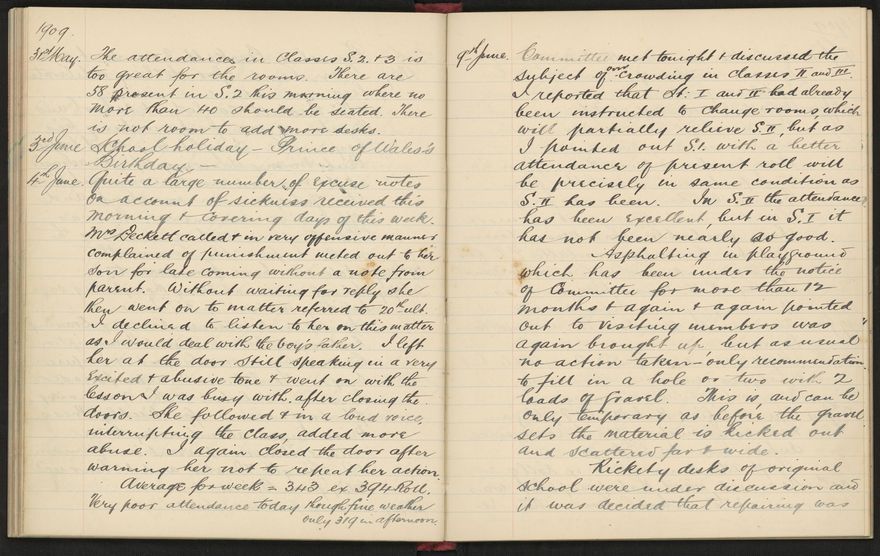 1909.
31st May. The attendances in Classes S.2. + 3 is
too great for the rooms. There are
58 present in S.2 this morning where no
more than 40 should be seated. There
is not room to add more desks.
3rd June School holiday — Prince of Wales's
Birthday. —
4th June. Quite a large number of excuse notes
on account of sickness received this
morning + covering days of this week.
Mrs Beckett called + in very offensive manner
complained of punishment meted out to her
son for late coming without a note from
parent. Without waiting for reply she
then went on to matter referred to 20th ult.
I declined to listen to her on this matter
as I would deal with the boy's father. I left
her at the door still speaking in a very
excited + abusive tone + went on with the
lesson I was busy with, after closing the
doors. She followed + in a loud voice,
interrupting the class, added more
abuse. I again closed the door after
warning her not to repeat her action.
Average for week = 343 ex 394 Roll.
Very poor attendance today though fine weather
only 319 in afternoon.
9th June. Committee met tonight + discussed the
subject of over-crowding in classes II and III
I reported that St. I and II had already
been instructed to change rooms, which
will partially relieve S.II, but as
I pointed out S.1. with a better
attendance of present roll will
be precisely in same condition as
S.II has been. In S.II the attendance
has been excellent, but in S.I it
has not been nearly so good.
Asphalting in playground
which has been under the notice
of Committee for more than 12
months + again + again pointed
out to visiting members was
again brought up but as usual
no action taken — only recommendation
to fill in a hole or two with 2
loads of gravel. This is and can be
only temporary as before the gravel
sets the material is kicked out
and scattered far + wide.
Rickety desks of original
school were under discussion and
it was decided that repairing was